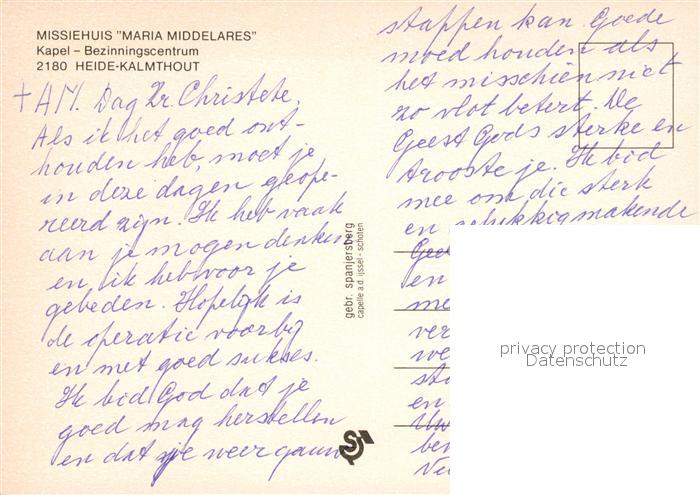 MISSIEHUIS "MARIA MIDDELARES"
Kapel – Bezinningscentrum
2180 HEIDE-KALMTHOUT
+ AM. Dag Zr. Christete,
Als ik het goed ont-
houden heb, moet je
in deze dagen geope-
reerd zijn. Ik heb vaak
aan je mogen denken
en ik heb voor je
gebeden. Hopelijk is
de operatie voorbij
en met goed sukses.
Ik bid God dat je
goed mag herstellen
en dat je weer gauw
stappen kan. Goede
moed houden als
het misschien niet
zo vlot betert. De
Geest Gods sterke en
trooste je. Ik bid
mee om die sterk
en gelukkigmakende
Gee
en
me
ver
we
sta
en
Uw
ben
Ve
gebr. spanjersberg
capelle a.d. ijssel - schoten
privacy protection
Datenschutz